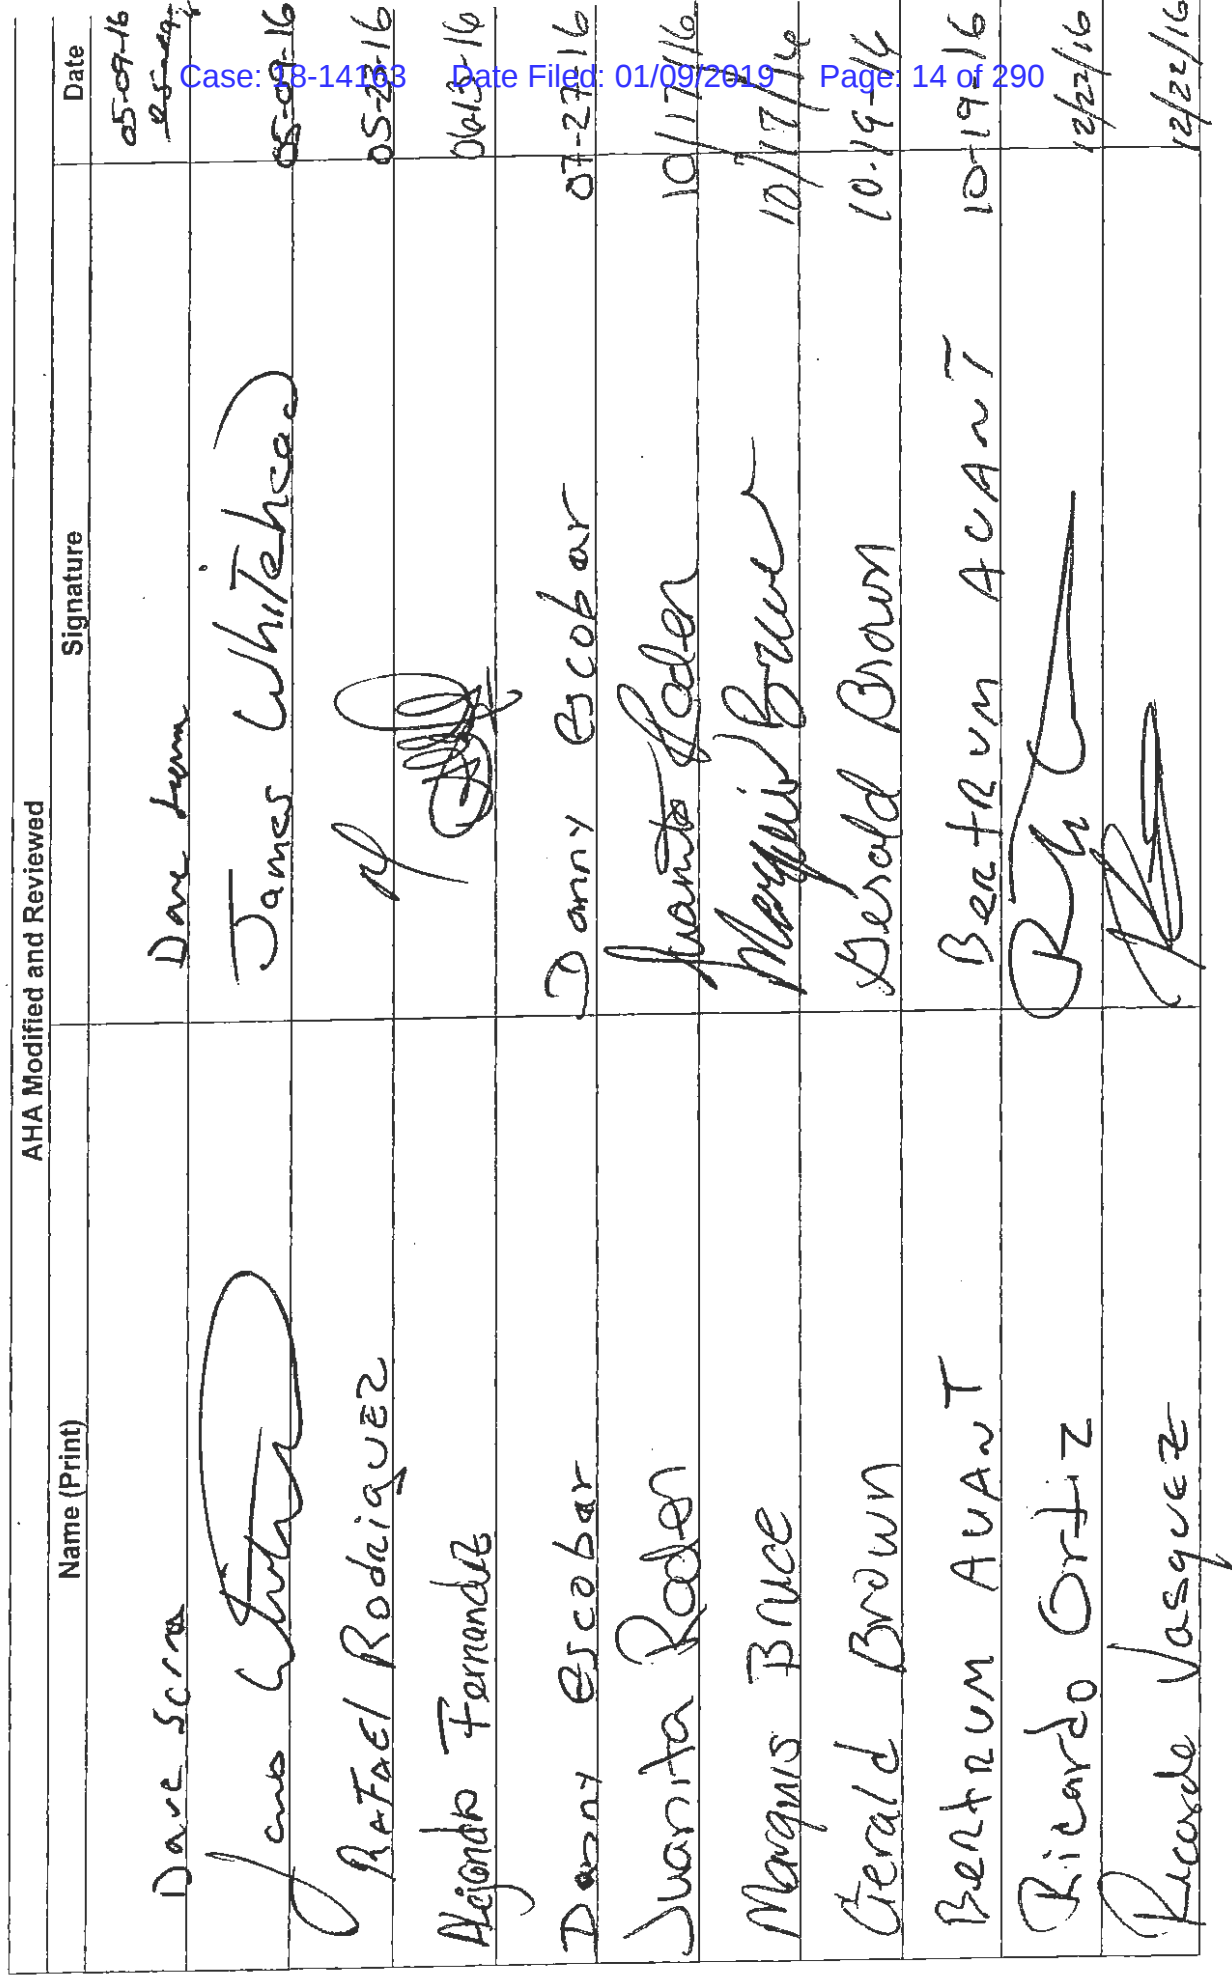 Case: 18-14163 Date Filed: 01/09/2019 Page: 14 of 290
AHA Modified and Reviewed
Name (Print) Signature Date
Dave Dave 05-09-16
James Whitehead 05-09-16
RAFAEl RodRiguEz 05-23-16
Alejandro Fernandez 0613-16
Danny escobar Danny escobar 07-27-16
Juanita Roden Juanita Roden 10/17/16
Marquis Bruce Marquis Bruce 10/17/16
Gerald Brown Gerald Brown 10-19-16
BeRtRUM AVANT BeRtRUM AVANT 10-19-16
Ricardo Ortiz 12/22/16
Ricardo Vasquez 12/22/16